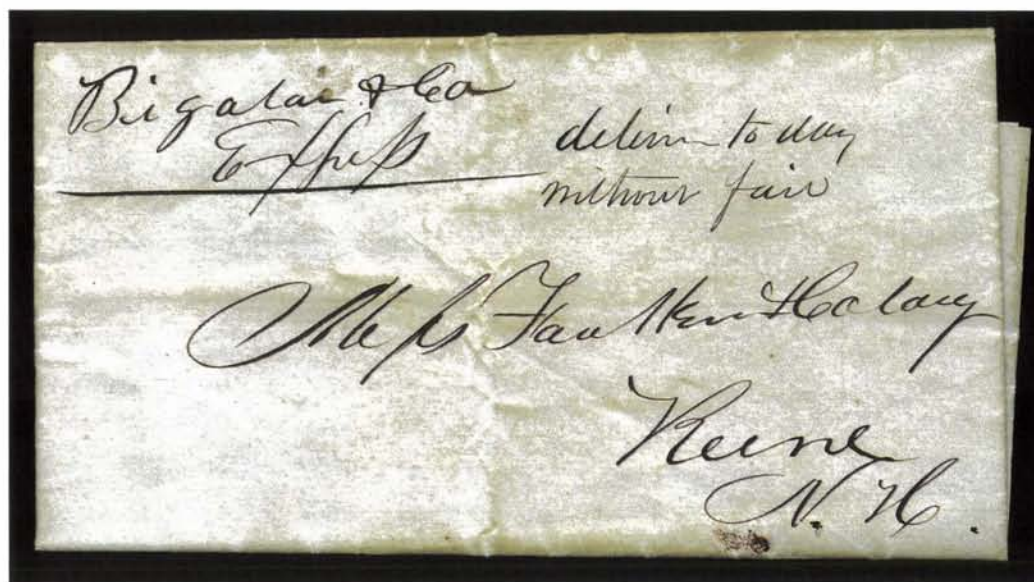 Bigalow & Co
Express
deliver to day
without fail
Mess Faulkner & Colony
Keene
N. H.